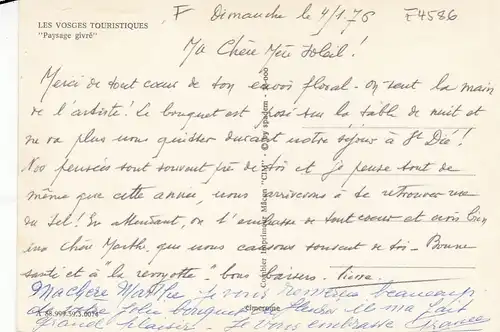 LES VOSGES TOURISTIQUES
"Paysage givré"
F Dimanche le 4/1.76 E4586
Ma Chère Mère Soleil !
Merci de tout cœur de ton envoi floral. On sent la main
de l'artiste ! Le bouquet est posé sur la table de nuit et
ne va plus nous quitter durant notre séjour à St Dié !
Nos pensées sont souvent près de toi et je pense tout de
même que cette année, nous arriverons à se retrouver
du Sel ! En attendant, on t'embrasse de tout cœur et crois bien
Chère Marthe que nous causons souvent de toi - Bonne
santé et à "la revoyotte" - bons baisers. Pierre
Ma chère Marthe je vous remercie beaucoup
de votre joli bouquet de fleurs il m'a fait
grand plaisir. Je vous embrasse France
Combier imprimeur Mâcon "CIM" © by spadem
K 88.999.59.3.0074